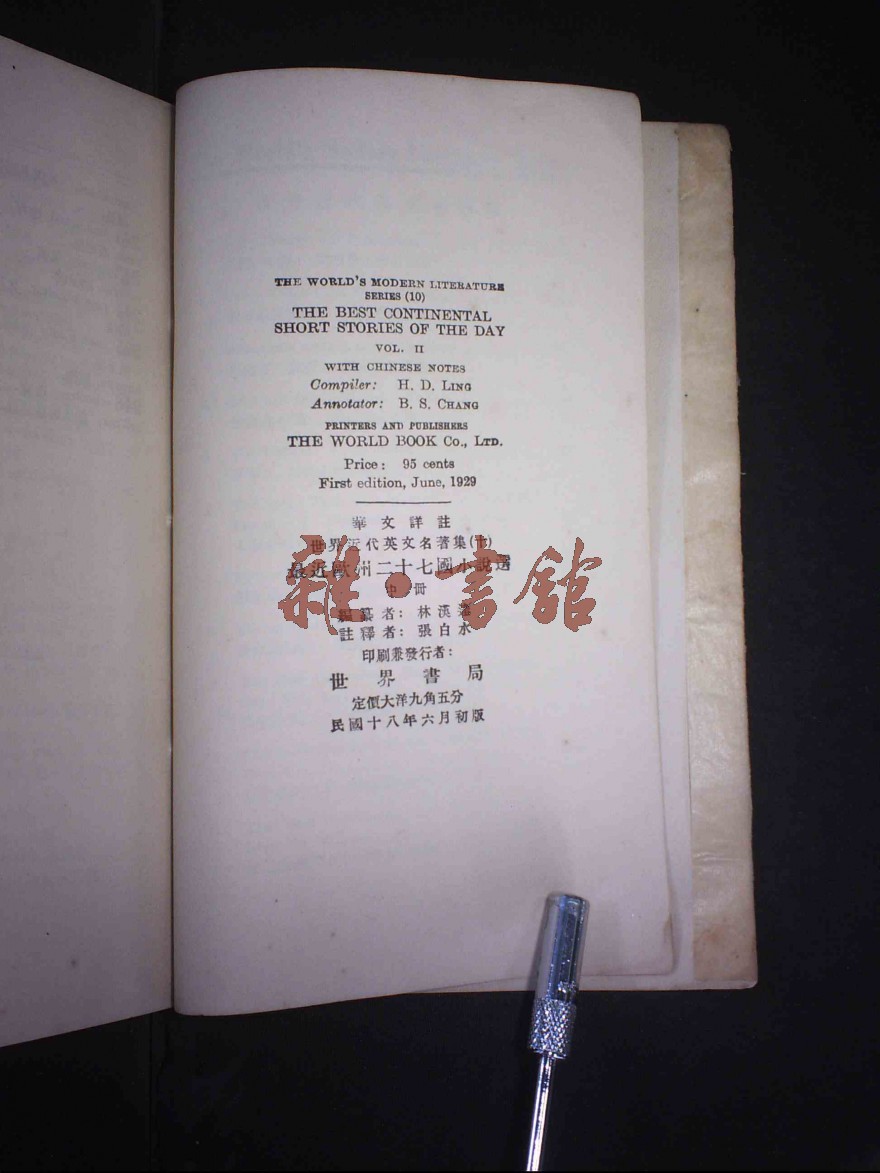 THE WORLD'S MODERN LITERATURE
SERIES (10)
THE BEST CONTINENTAL
SHORT STORIES OF THE DAY
VOL. II
WITH CHINESE NOTES
Compiler: H. D. LING
Annotator: B. S. CHANG
PRINTERS AND PUBLISHERS
THE WORLD BOOK Co., LTD.
Price: 95 cents
First edition, June, 1929
華文詳註
世界近代英文名著集(十)
最近歐洲二十七國小說選
中冊
雜·書館
編纂者:林漢
註釋者:張白水
印刷兼發行者:
世界書局
定價大洋九角五分
民國十八年六月初版